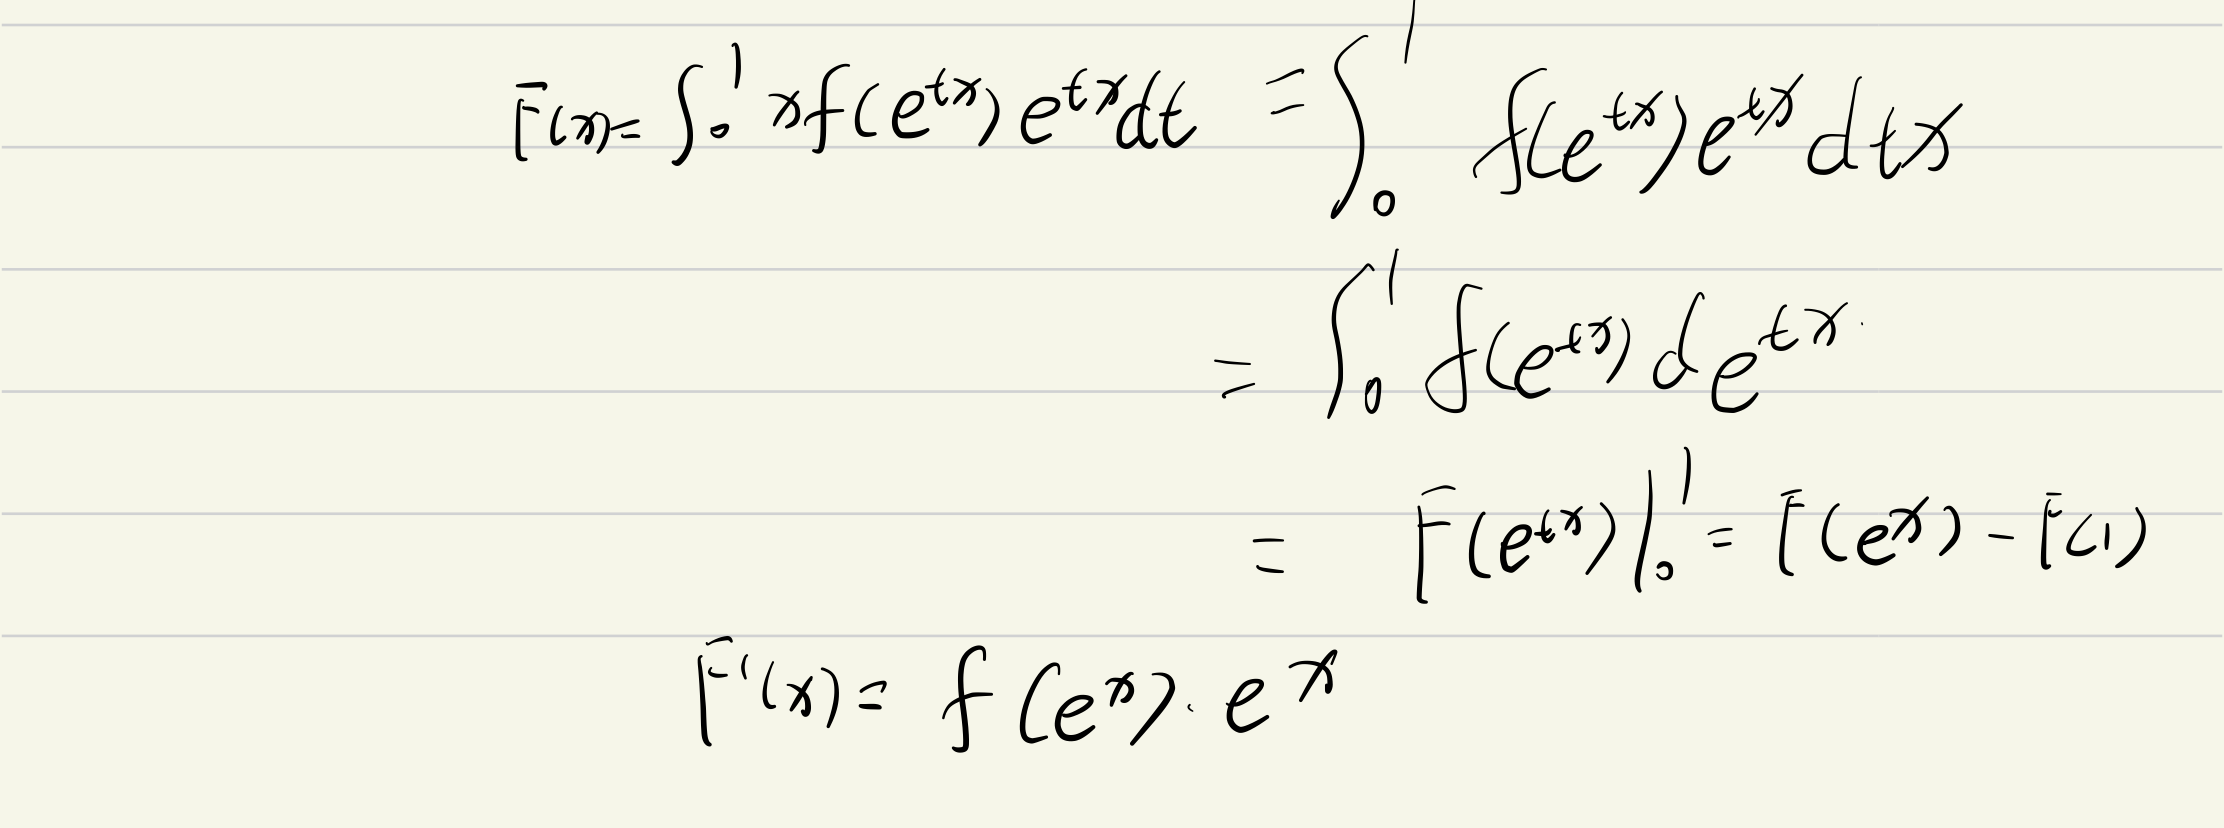 F(x) = ∫₀¹ x f(e^{tx}) e^{tx} dt = ∫₀¹ f(e^{tx}) e^{tx} dtx
= ∫₀¹ f(e^{tx}) d e^{tx}
= F(e^{tx}) |₀¹ = F(e^x) - F(1)
F'(x) = f(e^x) · e^x